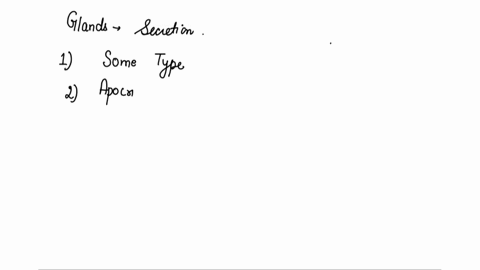 Glands → Secretion.
1) Some Type
2) Apocr